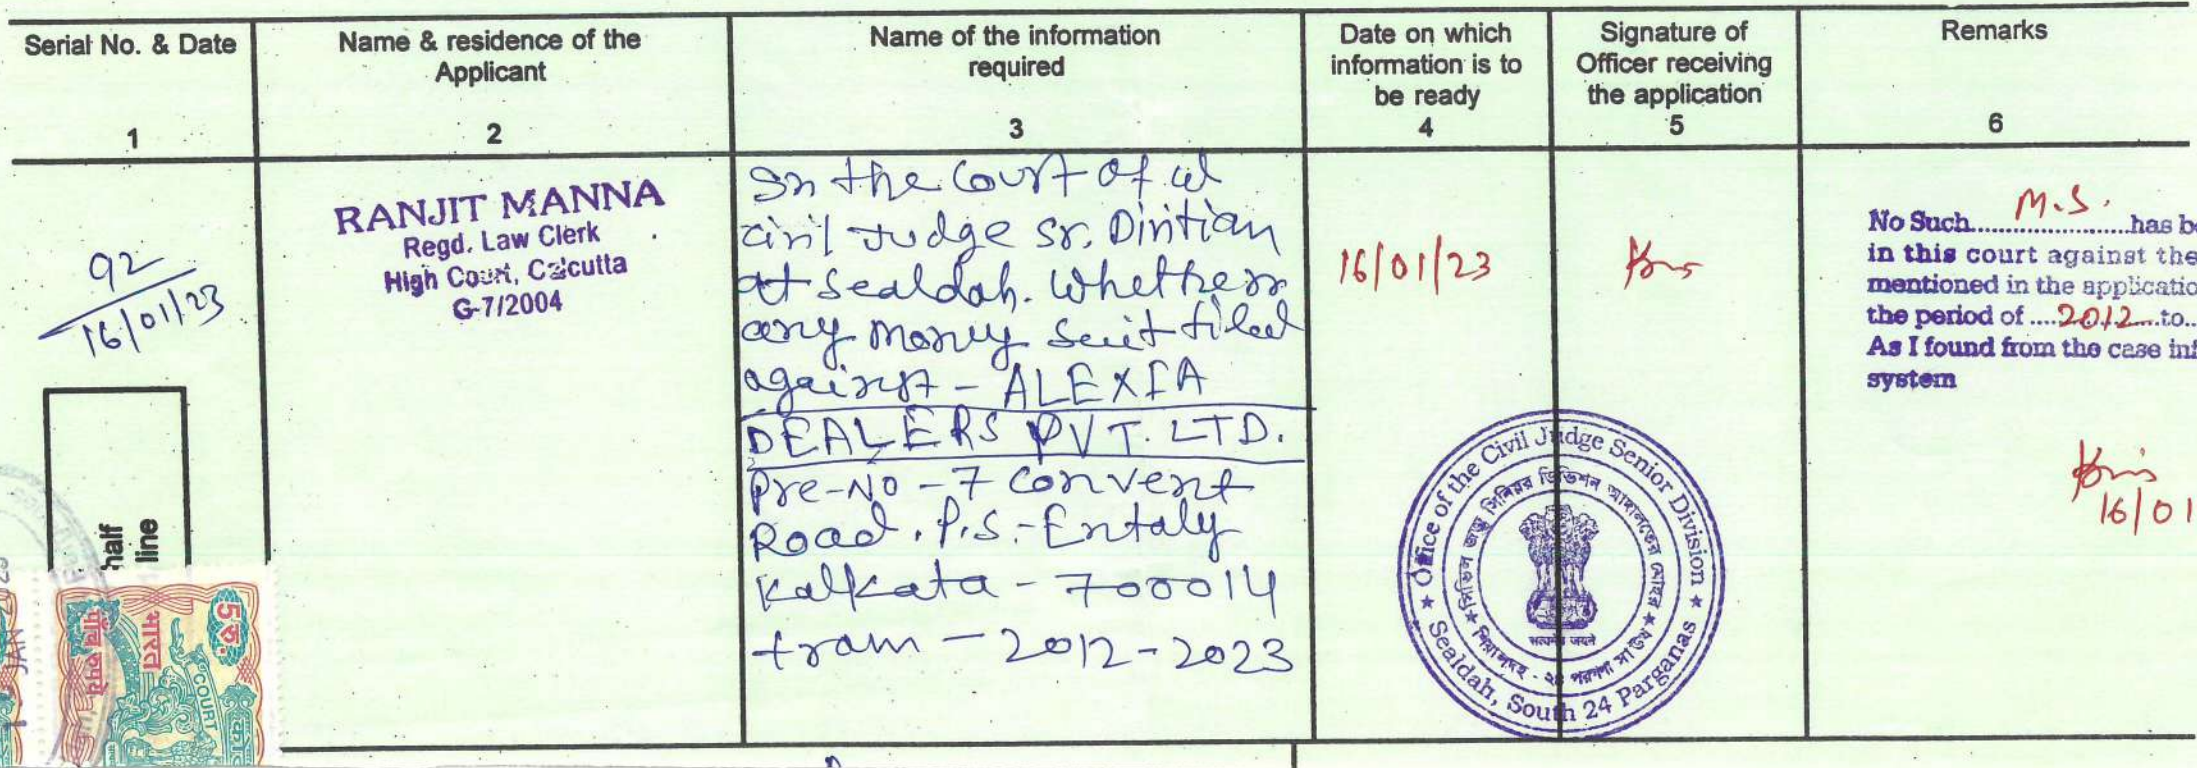 Serial No. & Date
1
Name & residence of the
Applicant
2
Name of the information
required
3
Date on which
information is to
be ready
4
Signature of
Officer receiving
the application
5
Remarks
6
92
16/01/23
RANJIT MANNA
Regd. Law Clerk
High Court, Calcutta
G-7/2004
In the Court of
civil Judge Sr. Divitian
at Sealdah. Whether
any money suit filed
against - ALEXIA
DEALERS PVT. LTD.
Pre-No - 7 Convent
Road. P.S.- Entaly
Kalkata - 700014
fram - 2012-2023
16/01/23
No Such.....M.S......has be
in this court against the
mentioned in the applicatio
the period of ....2012...to..
As I found from the case inf
system
16/01
Office of the Civil Judge Senior Division
★ Sealdah, South 24 Parganas ★
সিভিল জজ সিনিয়র ডিভিশন আদালতের মোহর
শিয়ালদহ - ২৪ পরগণা সাউথ
सत्यमेव जयते
half
line
JAN 2023
5रु.
भारत
पाँच रुपये
COURT